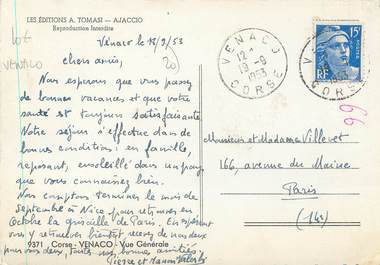 LES ÉDITIONS A. TOMASI - AJACCIO
Reproduction Interdite
Lot
VENACO
20
Venaco le 18/9/53
chers amis,
Nous esperons que vous passez
de bonnes vacances et que votre
santé est toujours satisfaisante.
Notre séjour s'effectue dans de
bonnes conditions : en famille,
reposant, ensoleillé dans un pays
que vous connaissez bien.
Nous comptons terminer le mois de
septembre à Nice pour retrouver en
Octobre la grisaille de Paris. En espérant
vous y retrouver bientôt recevez de nos deux
pour vous deux, toutes nos bonnes amitiés
Pierre et
9371 Corse - VENACO - Vue Générale
VENACO
12 H
19-9
1953
CORSE
VENACO
1953
CORSE
15F
RF
POSTES
99
Monsieur et Madame Villevet
166, avenue du Maine
Paris
(14e)